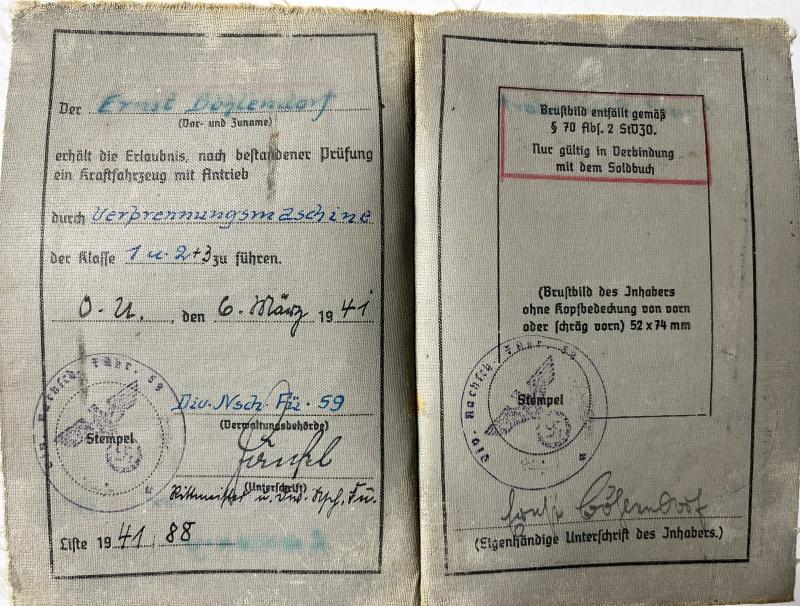 Der Ernst
(Vor- und Zuname)
erhält die Erlaubnis, nach bestandener Prüfung
ein Kraftfahrzeug mit Antrieb
durch Verbrennungsmaschine
der Klasse 1 u. 2+3 zu führen.
O. U., den 6. März 1941
Div. Nachsch. Führ. 59
Stempel
Div. Nsch. Fü. 59
(Verwaltungsbehörde)
(Unterschrift)
Rittmeister u. Div. Nsch. Fü.
Liste 1941, 88
Brustbild entfällt gemäß
§ 70 Abs. 2 StVZO.
Nur gültig in Verbindung
mit dem Soldbuch
(Brustbild des Inhabers
ohne Kopfbedeckung von vorn
oder schräg vorn) 52 x 74 mm
Div. Nachsch. Führ. 59
Stempel
(Eigenhändige Unterschrift des Inhabers.)